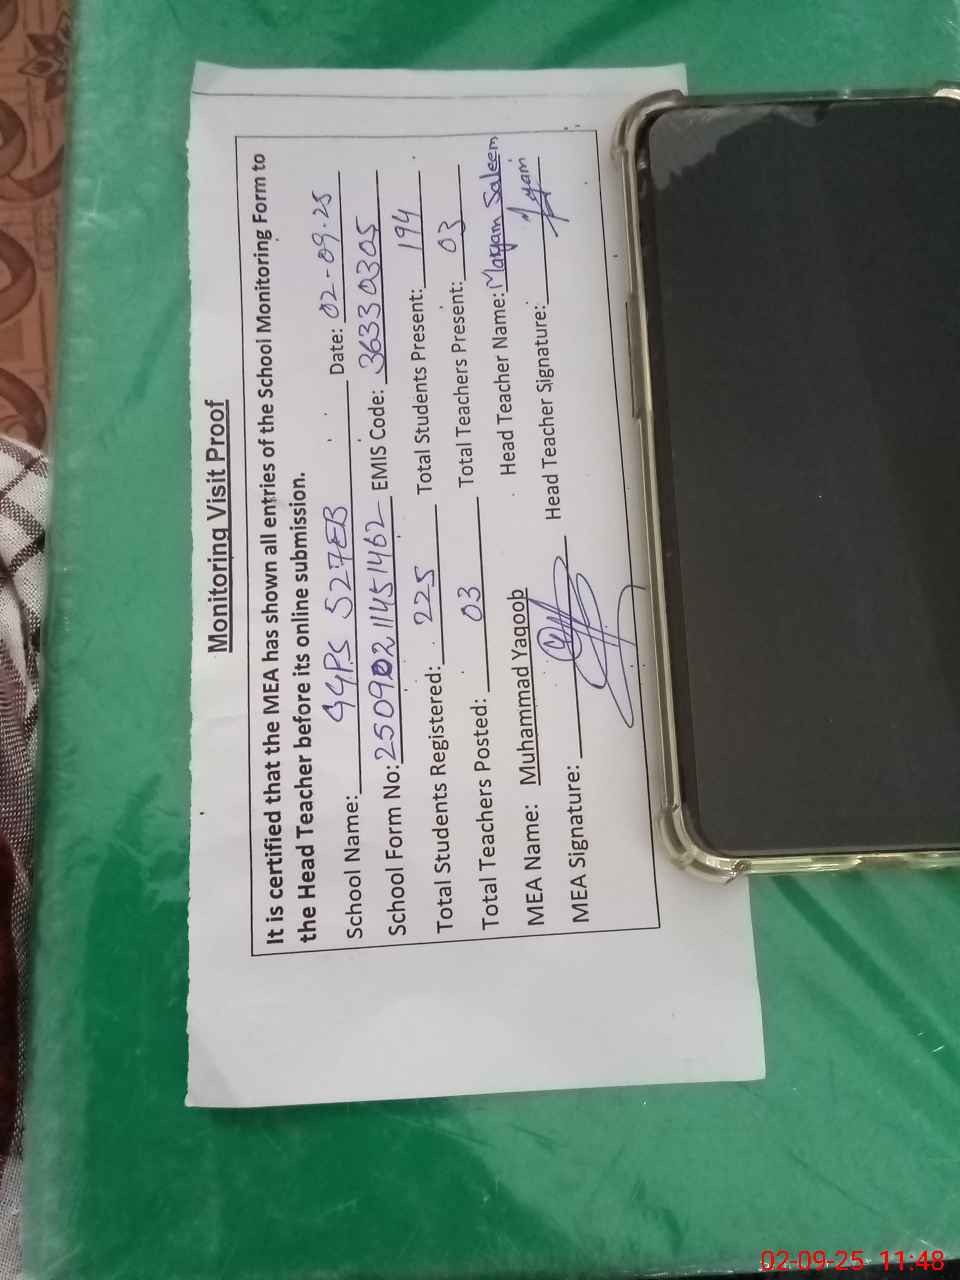 Monitoring Visit Proof
It is certified that the MEA has shown all entries of the School Monitoring Form to
the Head Teacher before its online submission.
School Name: GGPS 527EB Date: 02-09-25
School Form No: 25090211451462 EMIS Code: 36330305
Total Students Registered: 225 Total Students Present: 194
Total Teachers Posted: 03 Total Teachers Present: 03
MEA Name: Muhammad Yaqoob Head Teacher Name: Maryam Saleem
MEA Signature: Head Teacher Signature:
02-09-25 11:48